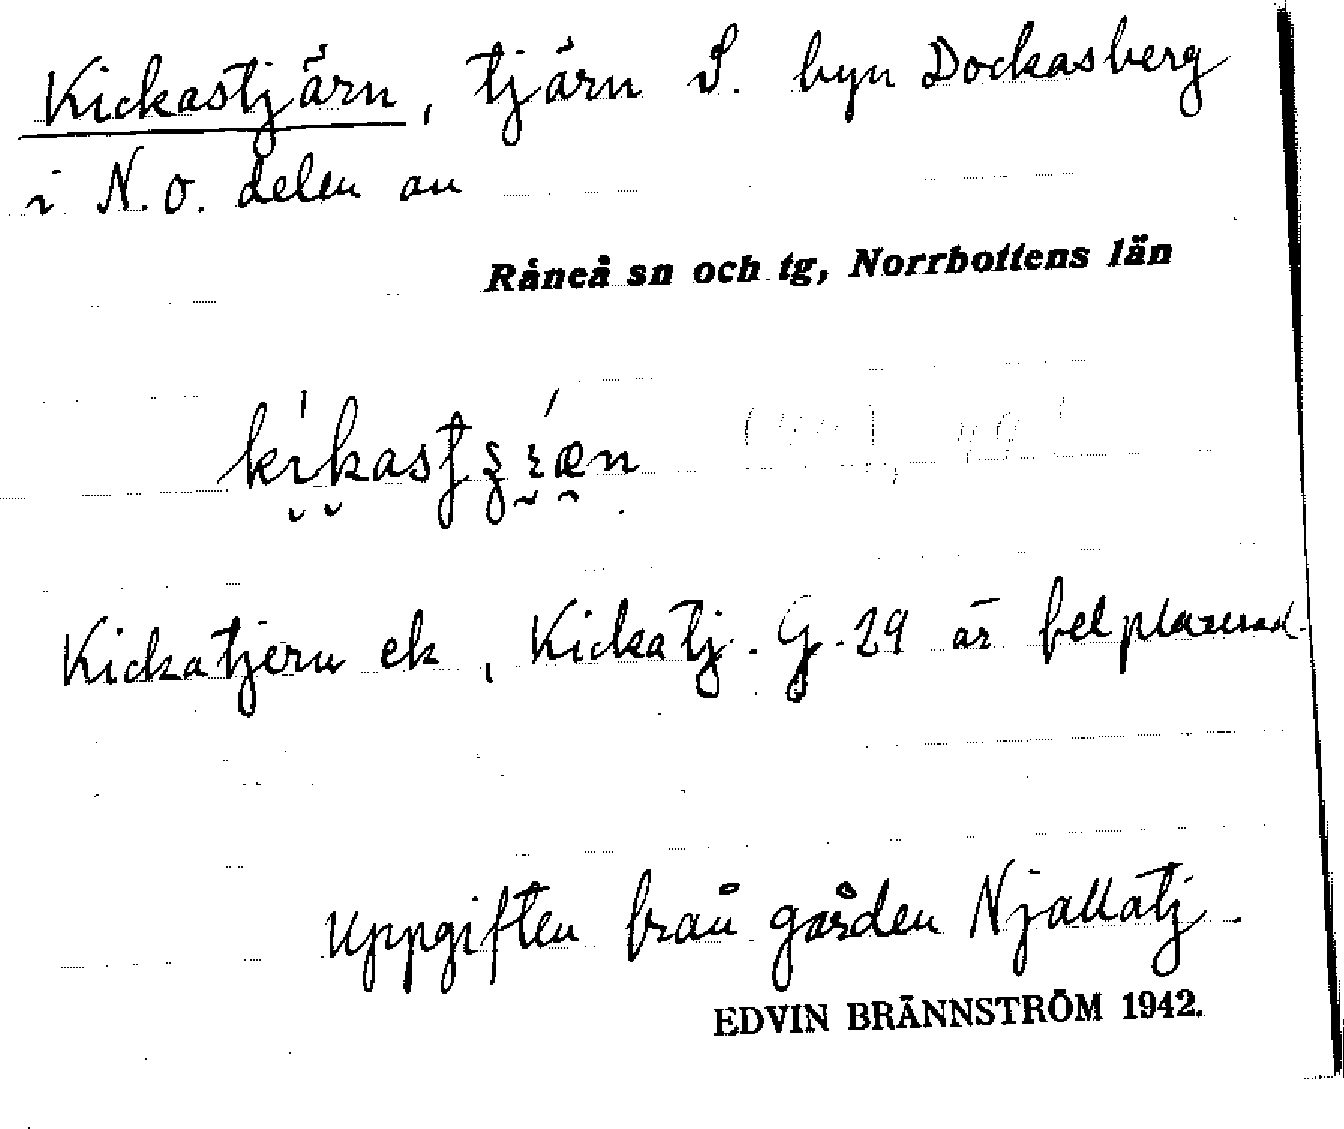 Kickastjärn, tjärn S. byn Dockasberg
i N.O. delen av
Råneå sn och tg, Norrbottens län
Kickatjern ek, Kickatj. G.29 är felplacerad.
Uppgiften från gården Njallatj.
EDVIN BRÄNNSTRÖM 1942.